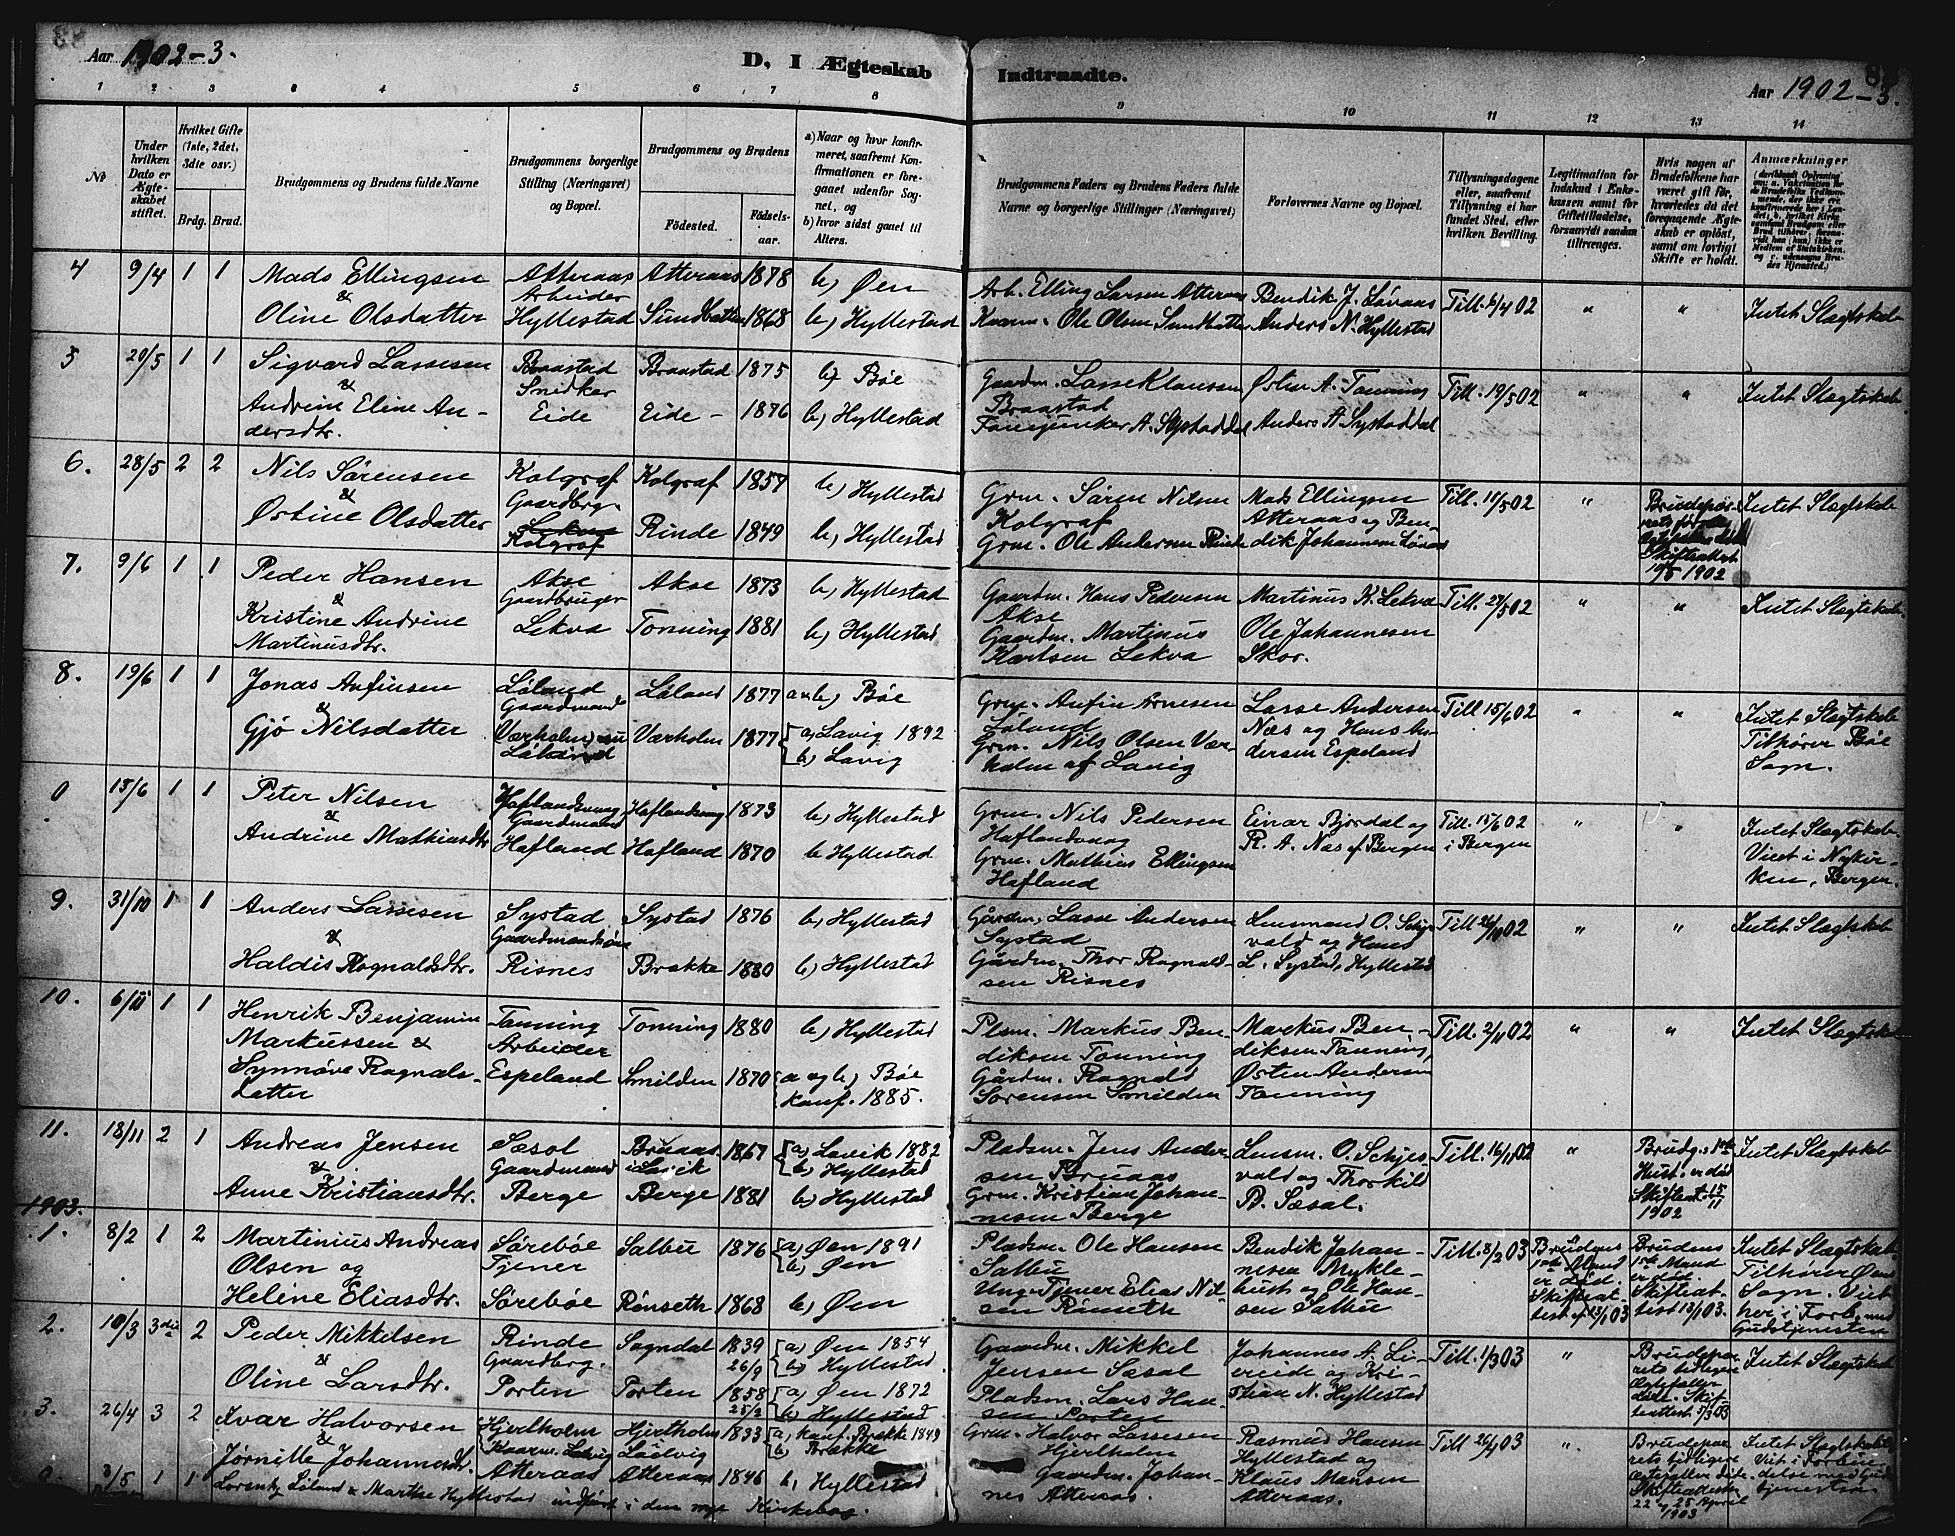 Aar 1902-3.
D, I Ægteskab
Indtraadte.
Aar 1902-3.
1 2 3 3 4 5 6 7 8 9 10 11 12 13 14
No
Under hvilken Dato er Ægteskabet stiftet.
Hvilket Gifte (1ste, 2det, 3die osv.)
Brdg. Brud.
Brudgommens og Brudens fulde Navne
Brudgommens borgerlige Stilling (Næringsvei) og Bopæl.
Brudgommens og Brudens
Fødested.
Fødselsaar.
a) Naar og hvor konfirmeret, saafremt Konfirmationen er foregaaet udenfor Sognet, og
b) hvor sidst gaaet til Alters.
Brudgommens Faders og Brudens Faders fulde Navne og borgerlige Stillinger (Næringsvei)
Forlovernes Navne og Bopæl.
Tillysningsdagene eller, saafremt Tillysning ei har fundet Sted, efter hvilken Bevilling.
Legitimation for Indskud i Enkekassen samt for Giftetilladelse, forsaavidt saadan tiltrænges.
Hvis nogen af Brudefolkene har været gift før, hvorledes da det foregaaende Ægteskab er opløst, samt om lovligt Skifte er holdt.
Anmærkninger
4 9/4 1 1 Mads Ellingsen Atteraas Atteraas 1878 b) Øen Arb. Elling Larsen Atteraas Bendik J. Løvaas Till. 6/4 02 " " Intet Slægtskab
& Arbeider
Oline Olsdatter Hyllestad Sundbotten 1868 b) Hyllestad Kvarm. Ole Olsen Sundbotten Anders N. Hyllestad
5 20/5 1 1 Sigvard Lassesen Braastad Braastad 1875 b) Bøe Gaardm. Lasse Klaussen Østen A. Tonning Till. 19/5 02 " " Intet Slægtskab
& Snedker Braastad
Andrine Eline Andersdtr. Eide Eide - 1876 b) Hyllestad Anders A Systaddal
6. 28/5 2 2 Nils Sørensen Kolgraf Kolgraf 1857 b) Hyllestad Grm. Søren Nilsen Mads Ellingsen Till. 11/5 02 " Intet Slægtskab
& Gaardbrg. Kolgraf Atteraas og Ben-
Østine Olsdatter Kolgraf Rinde 1849 b) Hyllestad Grm. Ole Andersen Rinde dik Johannesen Løvaas
Skifteattest 10/5 1902
7. 9/6 1 1 Peder Hansen Akse Akse 1873 b) Hyllestad Gaardm. Hans Pedersen Martinus K. Lekva Till. 27/5 02 " " Intet Slægtskab
& Gaardbruger Akse
Kristine Andrine Lekva Tonning 1881 b) Hyllestad Gaardm. Martinus Ole Johannesen
Martinusdtr. Karlsen Lekva Skor.
8. 19/6 1 1 Jonas Anfinsen Løland Løland 1877 a & b) Bøe Grm. Anfin Arnesen Lasse Andersen Till 15/6 02 " " Intet Slægtskab
& Gaardmand Løland Næs og Hans An- Tilhører Bøe
Gjø Nilsdatter Værholm, nu Værholm 1877 a) Lavig 1892 Grm. Nils Olsen Vær- dersen Espeland Sogn.
Løland b) Lavig holm af Lavig
0 15/6 1 1 Peter Nilsen Haflandsvaag Haflandsvaag 1873 b) Hyllestad Grm. Nils Pedersen Einar Bjordal og Till. 15/6 02 " " Intet Slægtskab.
& Gaardmand Haflandsvaag R. A. Næs af Bergen i Bergen Viet i Nykir-
Andrine Mathiasdtr Hafland Hafland 1870 b Hyllestad Grm. Mathias Ellingsen ken, Bergen.
Hafland
9. 31/10 1 1 Anders Lassesen Systad Systad 1876 b) Hyllestad Gårdm. Lasse Andersen Lensmand O. Schjes- Till 26/10 02 " " Intet Slægtskab
& Gaardmandssøn Systad vold og Hans
Haldis Ragnaldsdtr. Risnes Brække 1880 b) Hyllestad Gårdm. Thor Ragnald- L. Systad, Hyllestad
sen Risnes
10. 6/11 1 1 Henrik Benjamin Tonning Tonning 1880 b) Hyllestad Plsm. Markus Ben Markus Ben- Till. 2/11 02 " " Intet Slægtskab
Markussen & Arbeider diksen Tonning diksen Tonning,
Synnøve Ragnals- Espeland Smilden 1870 a og b) Bøe Gårdm. Ragnald Østen Andersen
datter konf. 1885. Sørensen Smilden Tonning
11. 18/11 2 1 Andreas Jensen Sæsol Bruaas 1867 a) Lavik 1882 Pladsm. Jens Ander- Lensm. O. Schjes- Till. 16/11 02 " Brudg.s 1ste Intet Slægtskab
& Gaardmand i Lavik b) Hyllestad sen Bruaas vold og Thorkild Hust. er død
Anne Kristiansdtr. Berge Berge 1881 b) Hyllestad Grm. Kristian Johan- B. Sæsal. Skifteat. 15/11
nesen Berge 1902
1903.
1. 8/2 1 2 Martinius Andreas Sørebøe Salbu 1876 a) Øen 1891 Pladsm. Ole Hansen Bendik Johan- Till. 8/2 03 Brudens Brudens Intet Slægtskab
Olsen og Tjener b) Øen Salbu nesen Mykle- 1ste Mand 1ste Mand Tilhører Øens
Helene Eliasdtr. Sørebøe Rønseth 1868 b) Øen Ung. Tjener Elias Nil- bust og Ole Han- er død. er død. Sogn. Viet
sen Rønseth sen Salbu Skifteattest af 13/1 03 Skifteattest 13/1 03. her i Forb. med
Gudstjenesten
2. 10/3 3die 2 Peder Mikkelsen Rinde Sogndal 1839 26/9 a) Øen 1854 Gaardm. Mikkel Johannes A. Li- Till. 1/3 03 " Brudepar- Intet Slægtskab
& Gaardbrg. b) Hyllestad Jensen Sæsal vereide og Kri- rets tidligere
Oline Larsdtr. Porten Porten 1858 25/2 a) Øen 1872 Pladsm. Lars Han- stian N. Hyllestad Ægtefæller
b) Hyllestad sen Porten døde. Skifteattest 5/3 03
3. 26/4 3 2 Ivar Halvorsen Hjertholm Hjertholm 1833 a) konf. Brække 1849 Grm. Halvor Lassesen Rasmus Hansen Till 26/4 03 " Brudepar- Intet Slægtskab
& Kaarm. Lavig b) Brække Hjertholm Hyllestad og rets tidligere Viet i Forbin-
Jørnille Johannesdtr. Atteraas Atteraas 1846 b) Hyllestad Gaardm. Johan- Klaus Monsen ægtefæller døde delse med Gud-
nes Atteraas. Atteraas. Skifteattester stjenesten
22 og 25 April 1903
0. 3/5 1 1 Lorentz Løland & Marthe Hyllestad indført i den nye Kirkebog.